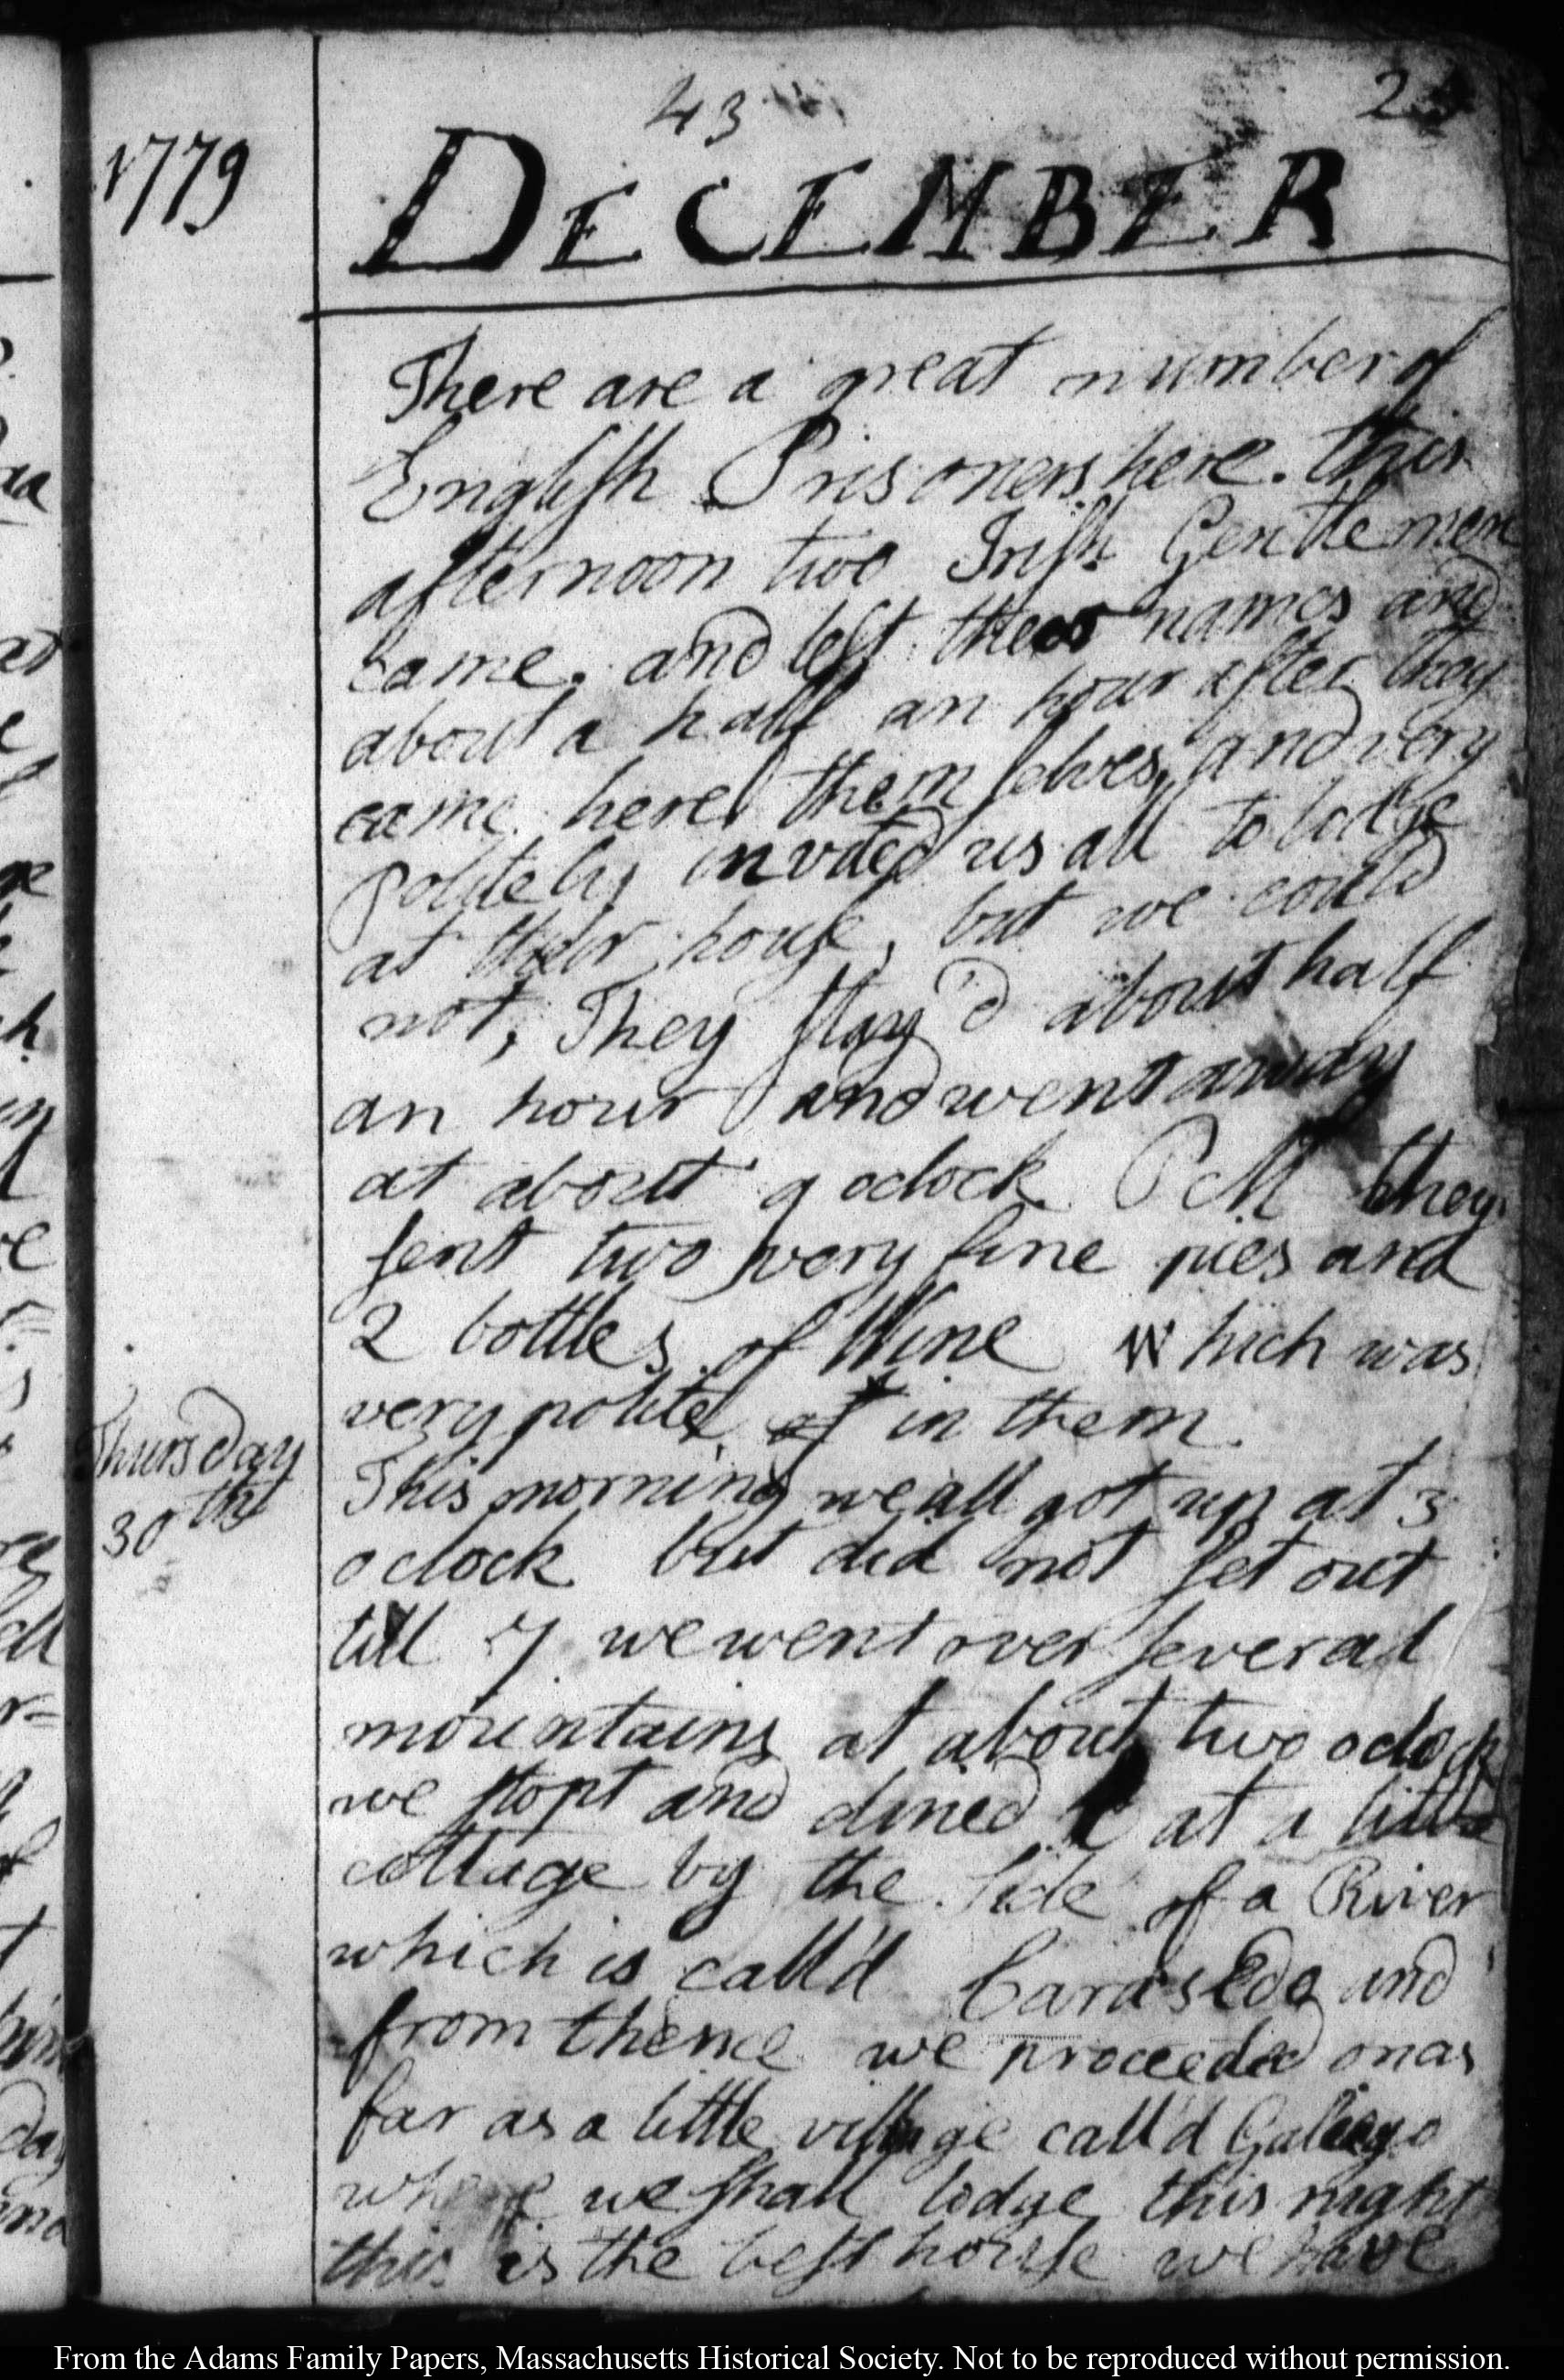 43
2
1779
DECEMBER
There are a great number of
English Prisoners here. this
afternoon two Irish Gentlemen
came. and left their names and
about a half an hour after they
came here themselves, and very
politely invited us all to lodge
at their house, but we could
not, They stay'd about half
an hour and went away
at about 9 oclock PM they
sent two very fine pies and
2 bottles of Wine which was
very polite of in them.
Thursday
30th
This morning we all got up at 3
oclock but did not set out
till 7 we went over several
mountains at about two oclock
we stopt and dined at a little
cottage by the side of a River
which is call'd Carasedo and
from thence we proceeded on as
far as a little village call'd
where we shall lodge this night
this is the best house we have
From the Adams Family Papers, Massachusetts Historical Society. Not to be reproduced without permission.